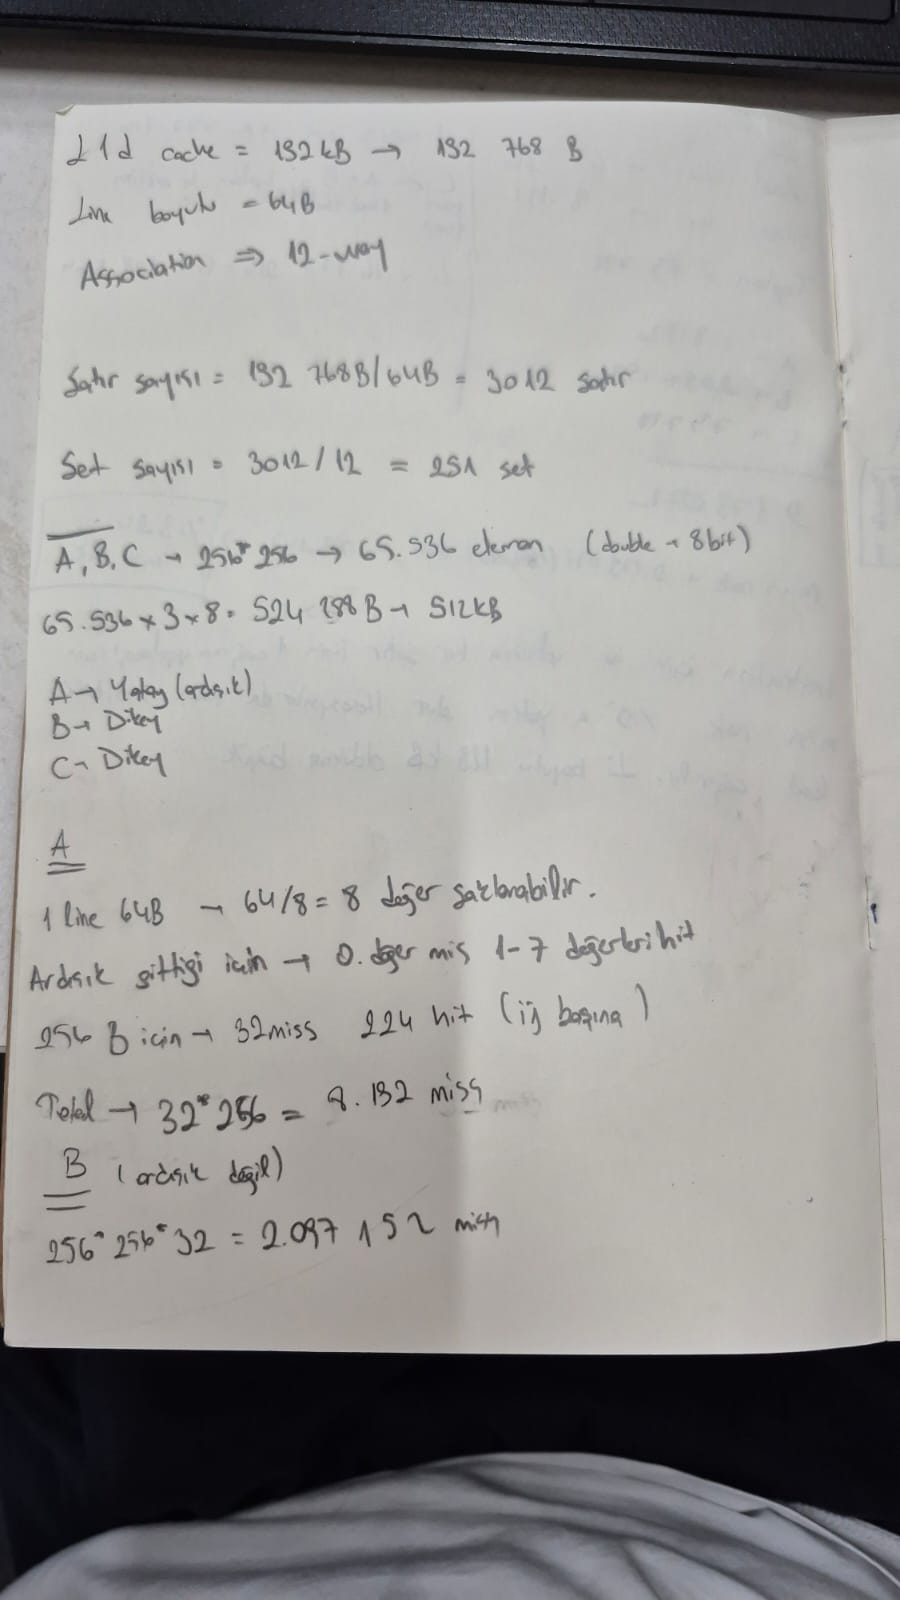 L1d cache = 192kB → 192 768 B
Line boyutu = 64B
Association ⇒ 12-way
Satır sayısı = 192 768B/64B = 3012 satır
Set sayısı = 3012/12 = 251 set
A, B, C → 256*256 → 65.536 eleman (double → 8bit)
65.536 x 3 x 8 = 524 288 B → 512kB
A → Yatay (ardışık)
B → Dikey
C → Dikey
A
1 line 64B → 64/8 = 8 değer saklanabilir.
Ardışık gittiği için → 0. değer mis 1-7 değerleri hit
256 B için → 32 miss 224 hit (ij başına)
Total → 32*256 = 8.192 miss
B (ardışık değil)
256*256*32 = 2.097 152 miss